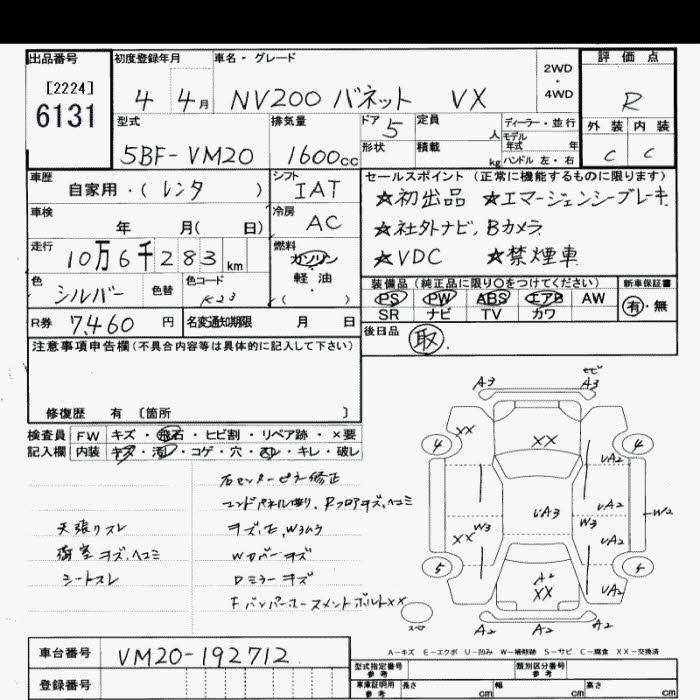 出品番号 初度登録年月 車名・グレード 評価点
[2224] 2WD
6131 4 4月 NV200 バネット VX ・ R
4WD
型式 排気量 ドア 5 定員 人 ディーラー・並行 外装 内装
モデル年式 年
5BF-VM20 1600cc 形状 積載 kg ハンドル 左・右 C C
車歴 シフト セールスポイント (正常に機能するものに限ります)
自家用・(レンタ ) IAT ☆初出品 ☆エマージェンシーブレーキ
車検 冷房
年 月( 日) AC ☆社外ナビ, Bカメラ
走行 燃料
10万6千283km ガソリン ☆VDC ☆禁煙車
色 色替 色コード 軽油 装備品 (純正品に限り○をつけてください) 新車保証書
シルバー K23 ( ) PS PW ABS エアB AW 有・無
SR ナビ TV カワ
R券 7,460円 名変通知期限 月 日 後日品 取
注意事項申告欄(不具合内容等は具体的に記入して下さい)
修復歴 有 [箇所 ]
検査員 FW キズ・飛石・ヒビ割・リペア跡・×要
記入欄 内装 キズ・汚レ・コゲ・穴・スレ・キレ・破レ
右センターピラー修正
エンドパネル曲り, Rフロアキズ,ヘコミ
天張りスレ キズ,E,W3ムラ
荷室キズ,ヘコミ Wカバーキズ
シートスレ Dミラーキズ
FバンパーホースメントボルトXX
A3 A3
4 XX XX 4
UA2
W3 UA3 W3 UA2 W2
XX UA2
5 A2 5
XX UA2
スペア A2 A2
A-キズ E-エクボ U-凹み W-補修跡 S-サビ C-腐食 XX-交換済
車台番号 VM20-192712 型式指定番号 参考 類別区分番号 参考
登録番号 車庫証明用 参考 長さ cm 幅 cm 高さ cm